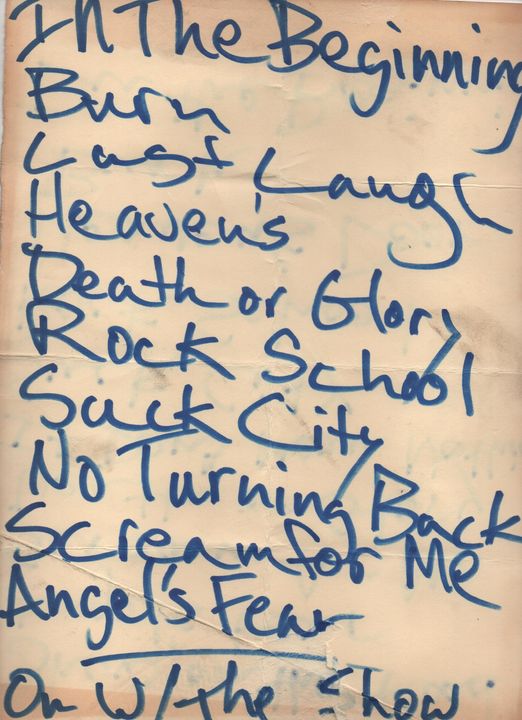 In The Beginning
Burn
Last Laugh
Heaven's
Death or Glory
Rock School
Suck City
No Turning Back
Scream for Me
Angel's Fear
On w/the Show